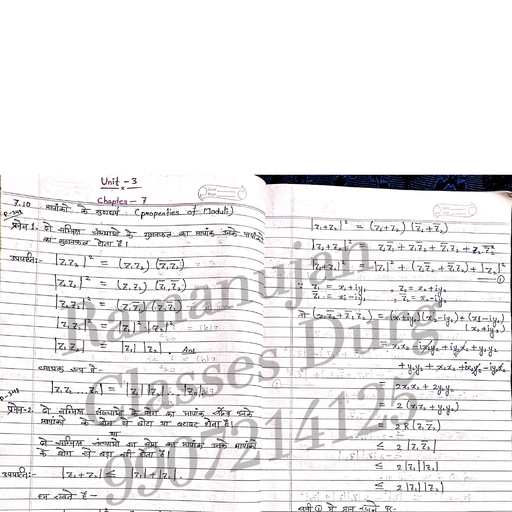 Unit - 3
Chapter - 7
7.10 मापांकों के गुणधर्म (properties of Moduli)
P-343
प्रमेय 1. दो सम्मिश्र संख्याओं के गुणनफल का मापांक उनके मापांकों
का गुणनफल होता है।
उपपत्ति:- |z₁z₂|² = (z₁z₂) (z̅₁z̅₂)
|z₁z₂|² = (z₁z₂) (z̅₁z̅₂)
|z₁z₂|² = (z₁z̅₁) (z₂z̅₂)
|z₁z₂|² = |z₁|² |z₂|²
|z₁z₂| = |z₁| |z₂| . Ans
व्यापक रूप में -
|z₁z₂...zₙ| = |z₁| |z₂|...|zₙ|
P-343
प्रमेय-2. दो सम्मिश्र संख्याओं के योग का मापांक सदैव उनके
मापांकों के योग से छोटा या बराबर होता है।
या
दो सम्मिश्र संख्याओं का योग का मापांक उनके मापांकों
के योग से बड़ा नहीं होता है।
उपपत्ति:- |z₁+z₂| ≤ |z₁|+|z₂| .
हम रखते हैं -
|z₁+z₂|² = (z₁+z₂) (z̅₁+z̅₂)
|z₁+z₂|² = z₁z̅₁ + z₁z̅₂ + z̅₁z₂ + z₂z̅₂
|z₁+z₂|² = |z₁|² + (z₁z̅₂ + z̅₁z₂) + |z₂|² ①
∵ z₁ = x₁+iy₁ , z₂ = x₂+iy₂
z̅₁ = x₁-iy₁ , z̅₂ = x₂-iy₂
तो (z₁z̅₂ + z̅₁z₂) = (x₁+iy₁)(x₂-iy₂) + (x₁-iy₁)
(x₂+iy₂)
= x₁x₂ - ix₁y₂ + iy₁x₂ + y₁y₂
+ y₁y₂ + x₁x₂ + ix₁y₂ - iy₁x₂
= 2x₁x₂ + 2y₁y₂
= 2 (x₁x₂ + y₁y₂)
= 2 R (z₁z̅₂)
≤ 2 |z₁z̅₂|
≤ 2 |z₁| |z̅₂|
≤ 2 |z₁| |z₂|
समी ① में मान रखने पर-
Ramanujan
Classes Durg